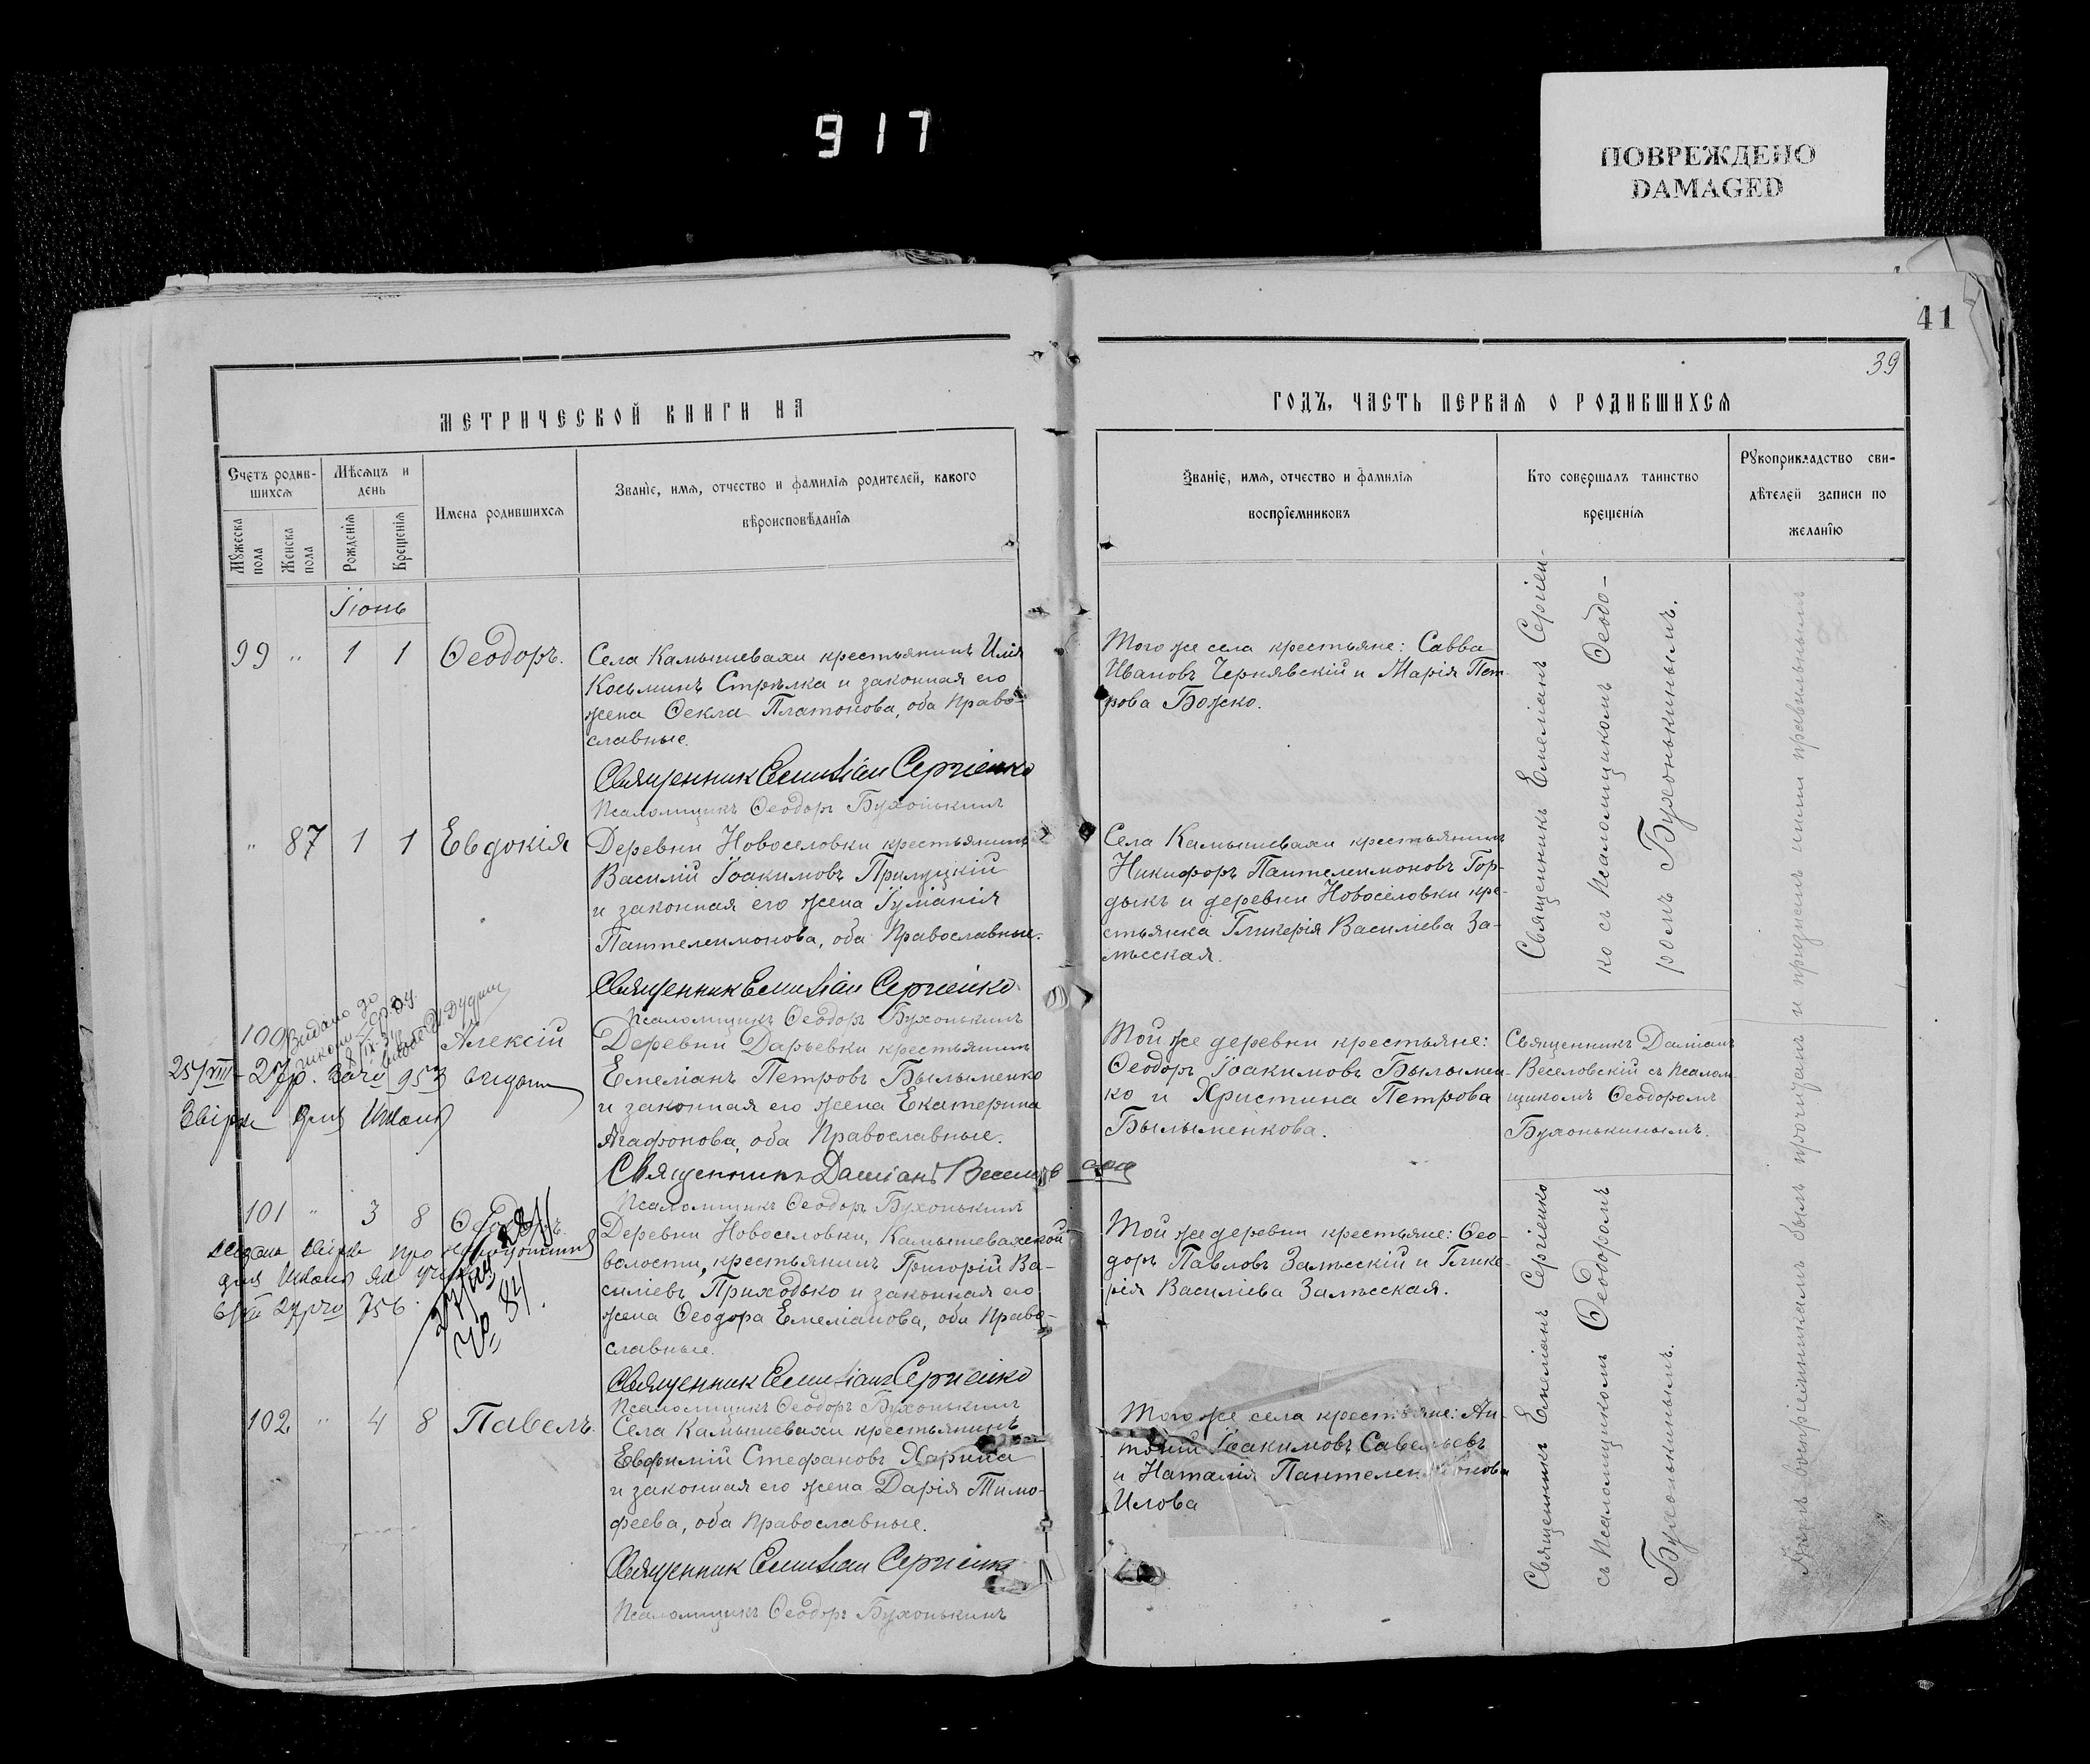 917
ПОВРЕЖДЕНО
DAMAGED
41
39
МЕТРИЧЕСКОЙ КНИГИ НА
ГОДЪ, ЧАСТЬ ПЕРВАЯ О РОДИВШИХСЯ
Счетъ родив-
шихся
Мужеска пола
Женска пола
Мѣсяцъ и
день
Рожденія
Крещенія
Имена родившихся
Званіе, имя, отчество и фамилія родителей, какого
вѣроисповѣданія
Званіе, имя, отчество и фамилія
воспріемниковъ
Кто совершалъ таинство
крещенія
Рукоприкладство сви-
дѣтелей записи по
желанію
Іюнь
99 " 1 1 Ѳеодоръ.
Села Камышевахи крестьянинъ Илія
Косьминъ Стрѣлка и законная его
жена Ѳекла Платонова, оба Право-
славные.
Священник Емилiан Сергiенко
Псаломщикъ Ѳеодоръ Бухонькинъ
Того же села крестьяне: Савва
Ивановъ Чернявскій и Марія Пет-
рова Божко.
Священникъ Емеліанъ Сергіен-
ко съ Псаломщикомъ Ѳеодо-
ромъ Бухонькинымъ.
" 87 1 1 Евдокія
Деревни Новоселовки крестьянинъ
Василій Іоакимовъ Прилуцкій
и законная его жена Іуліанія
Пантелеимонова, оба Православные.
Священник Емилiан Сергiенко
Псаломщикъ Ѳеодоръ Бухонькинъ
Села Камышевахи крестьянинъ
Никифоръ Пантелеимоновъ Гор-
дыкъ и деревни Новоселовки кре-
стьянка Гликерія Василіева За-
лѣсская.
100 Алексій
Видано до
25/VIII-27р. 953 видана
для школи
Деревни Дарьевки крестьянинъ
Емеліанъ Петровъ Былыменко
и законная его жена Екатерина
Агафонова, оба Православные.
Священникъ Даміанъ Веселовскій
Псаломщикъ Ѳеодоръ Бухонькинъ
Той же деревни крестьяне:
Ѳеодоръ Іоакимовъ Былымен-
ко и Христина Петрова
Былыменкова.
Священникъ Даміанъ
Веселовскій съ Псалом-
щикомъ Ѳеодоромъ
Бухонькинымъ.
101 " 3 8 Ѳеодоръ.
про
для школи
27р 756
Деревни Новоселовки, Камышевахской
волости, крестьянинъ Григорій Ва-
силіевъ Приходько и законная его
жена Ѳеодора Емеліанова, оба Право-
славные.
Священник Емилiан Сергiенко
Псаломщикъ Ѳеодоръ Бухонькинъ
Той же деревни крестьяне: Ѳео-
доръ Павловъ Залѣсскій и Глике-
рія Василіева Залѣсская.
Священникъ Емеліанъ Сергіенко
съ Псаломщикомъ Ѳеодоромъ
Бухонькинымъ.
102 " 4 8 Павелъ.
Села Камышевахи крестьянинъ
Евфимій Стефановъ Харина
и законная его жена Дарія Тимо-
феева, оба Православные.
Священник Емилiан Сергiенко
Псаломщикъ Ѳеодоръ Бухонькинъ
Того же села крестьяне: Ан-
тоній Іоакимовъ Савельевъ
и Наталія Пантелеимонова
Илова